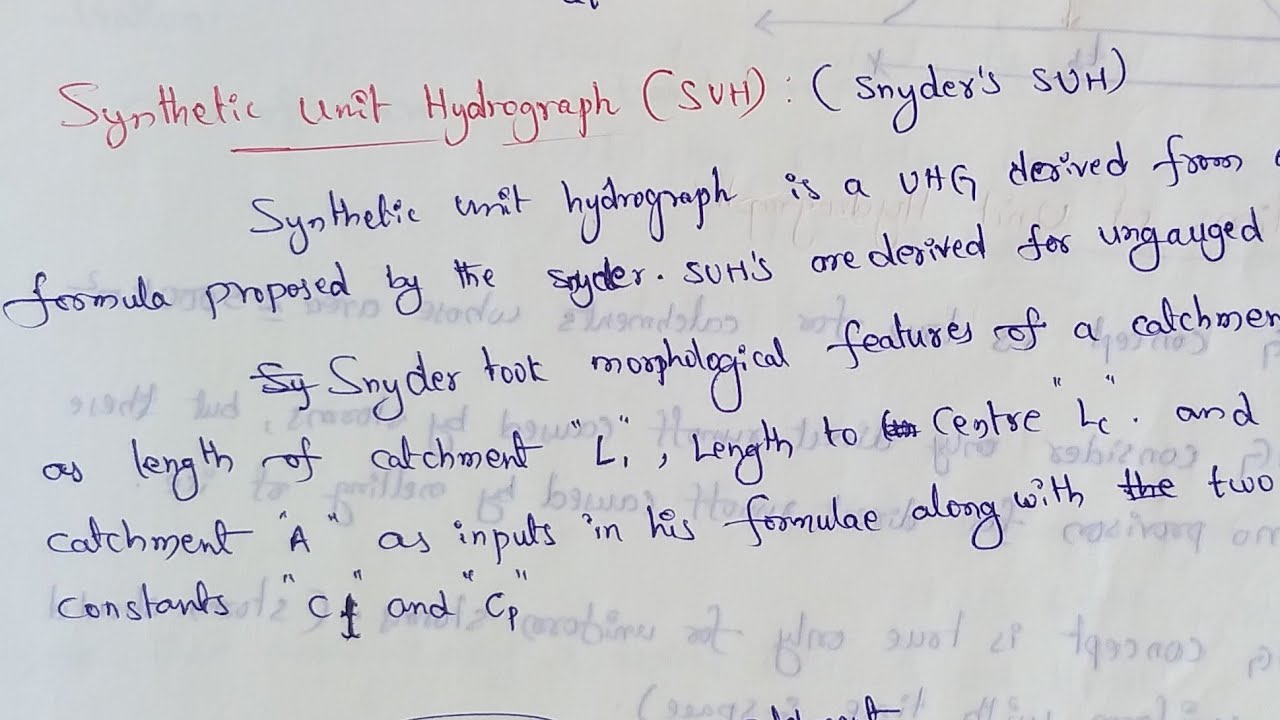 Synthetic Unit Hydrograph (SUH): (Snyder's SUH)
Synthetic unit hydrograph is a UHG derived from
formula proposed by the snyder. SUH's are derived for ungauged
Snyder took morphological features of a catchmen
as length of catchment "L", Length to centre "Lc". and
catchment "A" as inputs in his formulae along with the two
constants "Ct" and "Cp"